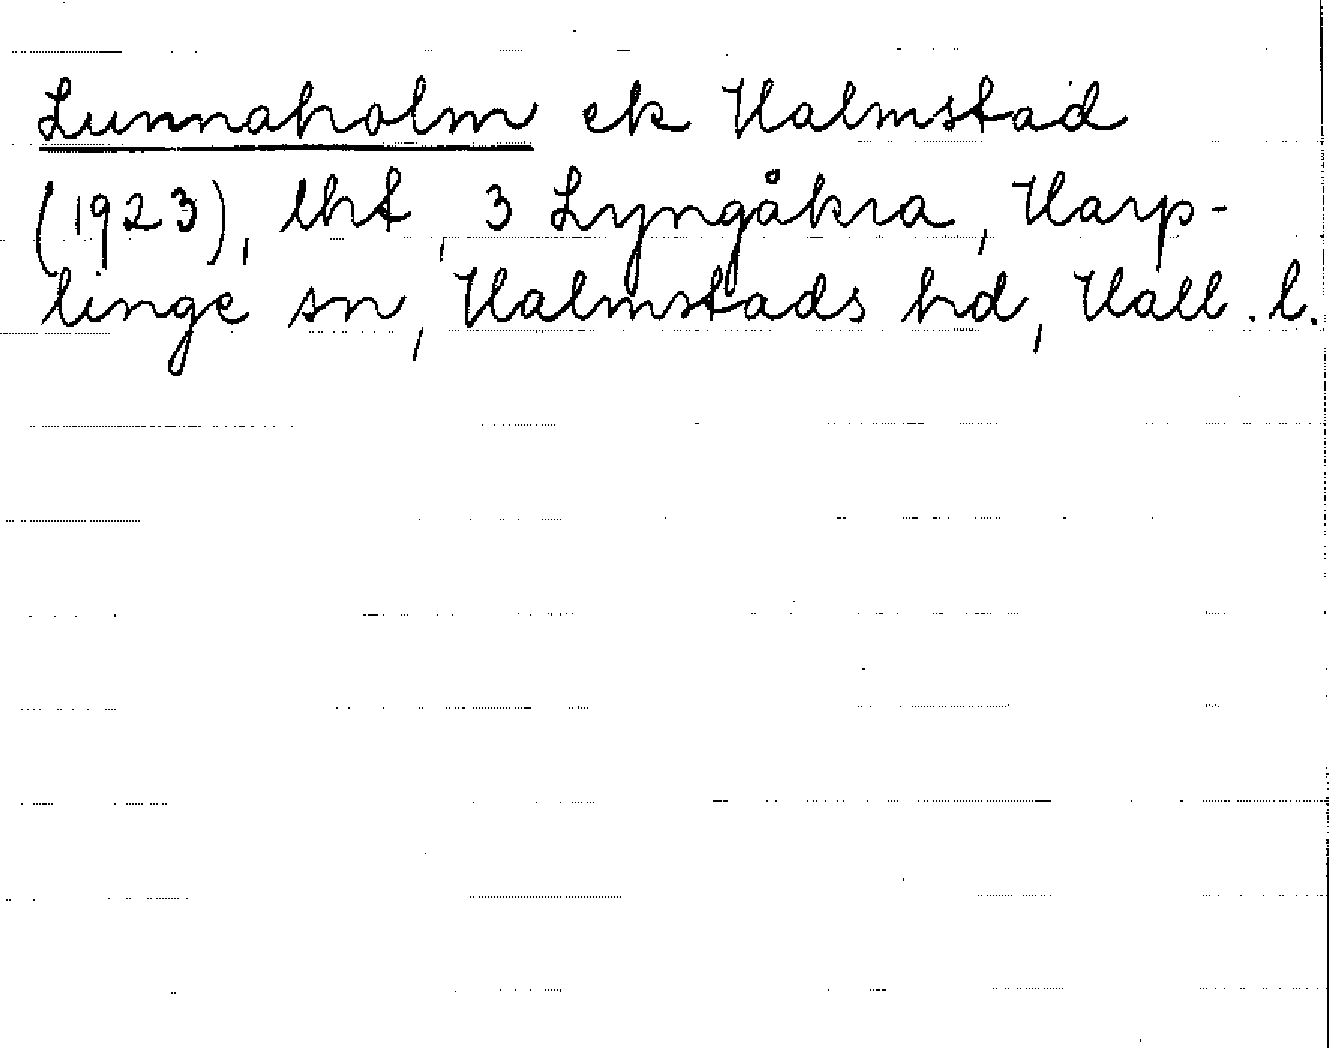 Lunnaholm ek Halmstad
(1923), lht, 3 Lyngåkra, Harp-
linge sn, Halmstads hd, Hall. l.